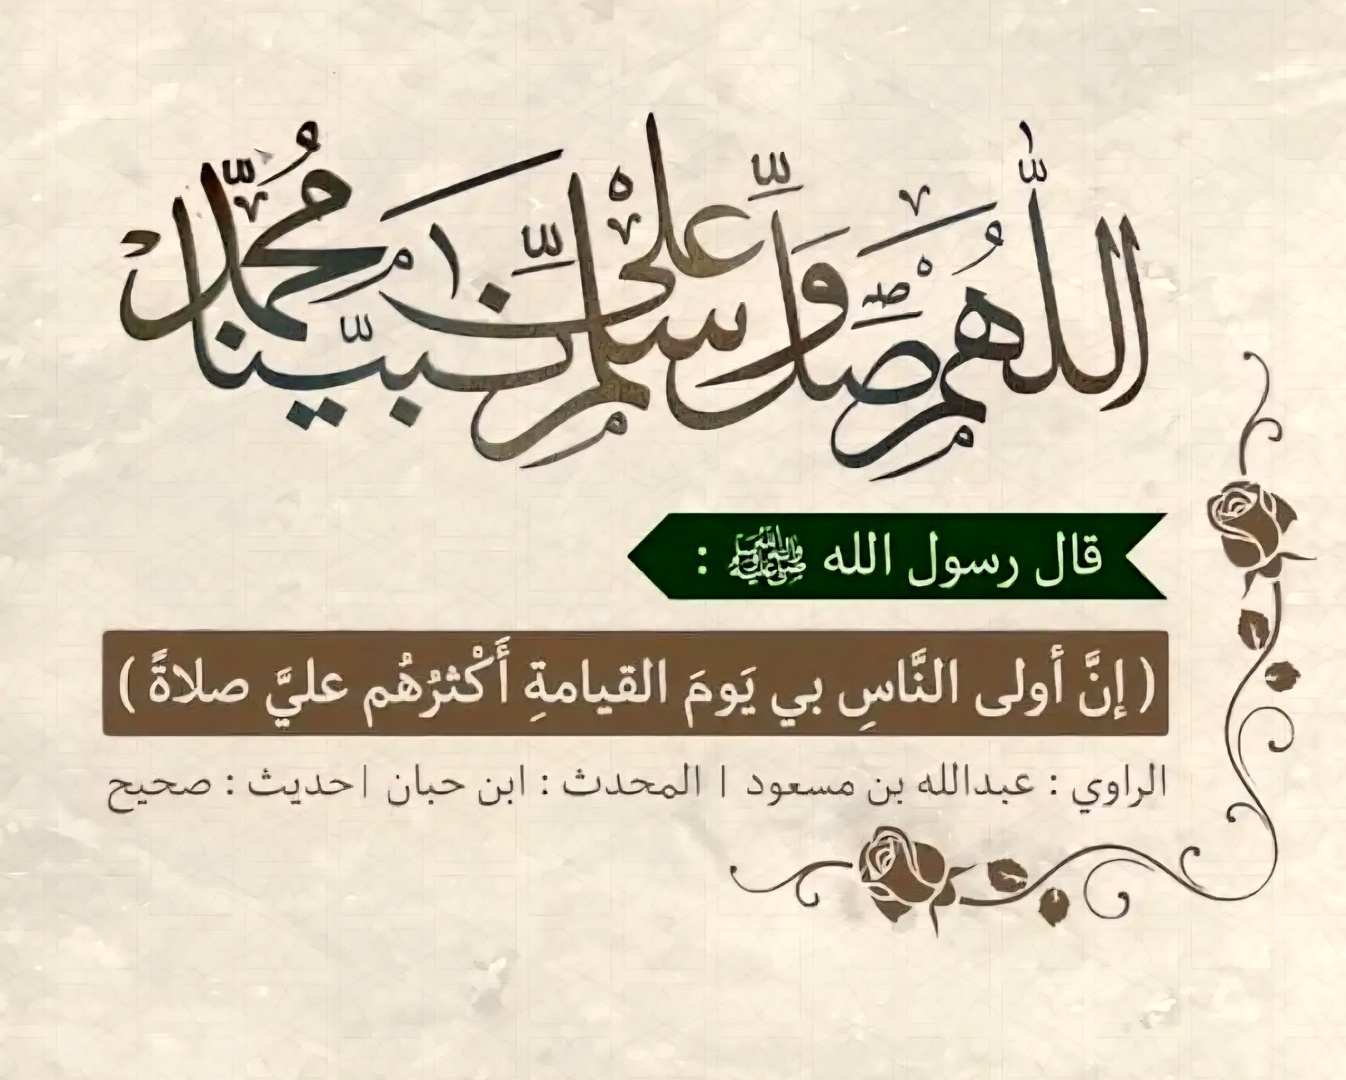 اللهم صل وسلم على نبينا محمد
قال رسول الله ﷺ :
( إنَّ أولى النَّاسِ بي يَومَ القيامةِ أَكْثرُهُم عليَّ صلاةً )
الراوي : عبدالله بن مسعود | المحدث : ابن حبان | حديث : صحيح